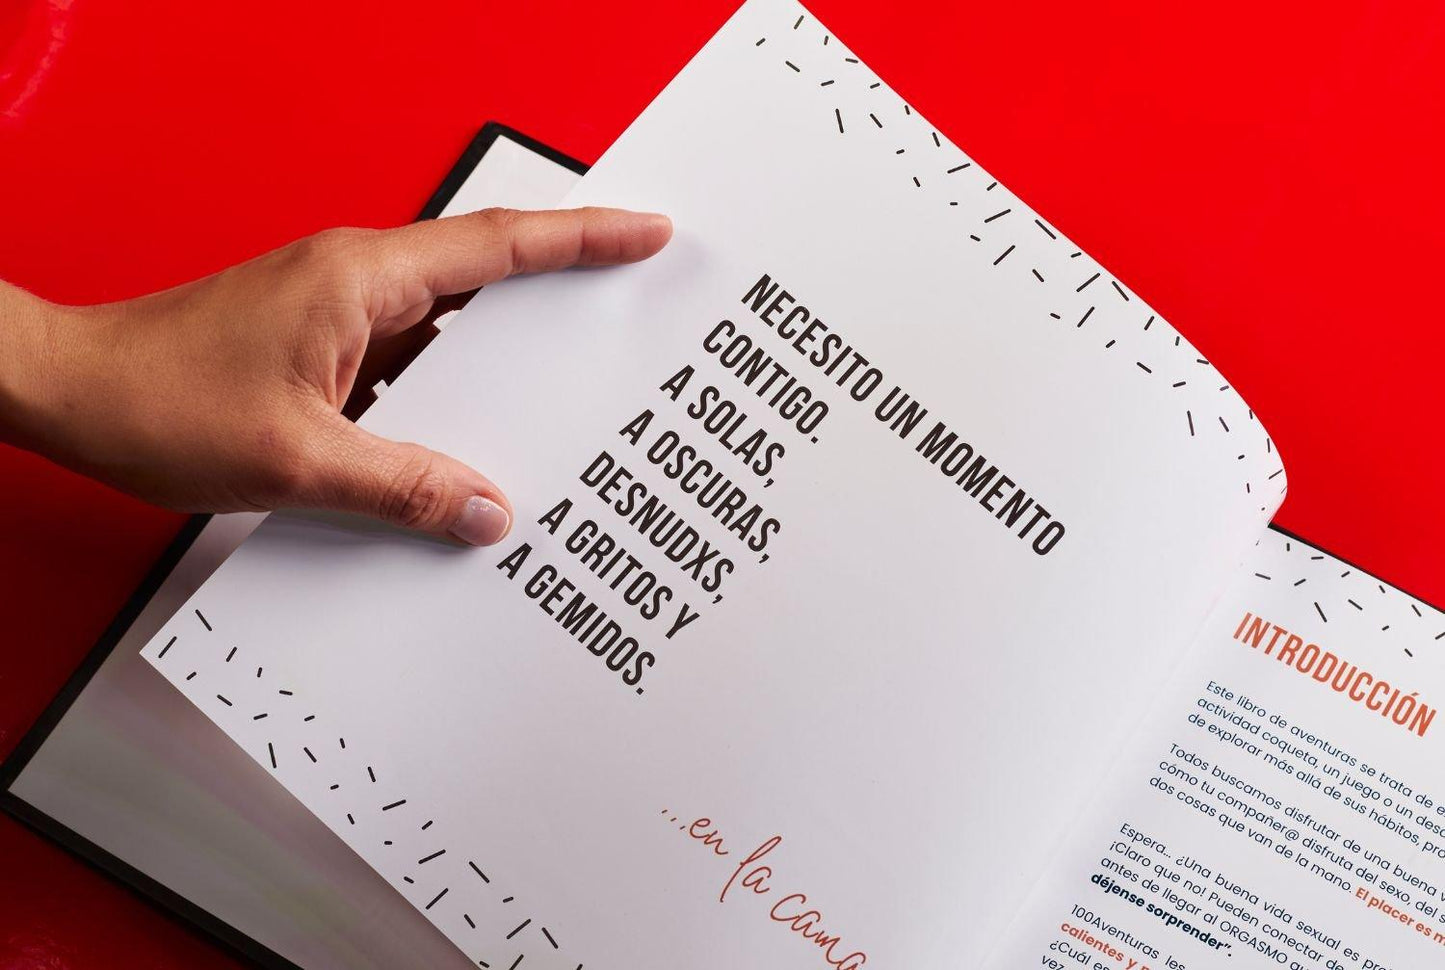 NECESITO UN MOMENTO
CONTIGO.
A SOLAS,
A OSCURAS,
DESNUDXS,
A GRITOS Y
A GEMIDOS.
...en la cama
INTRODUCCIÓN
Este libro de aventuras se trata de
actividad coqueta, un juego o un
de explorar más allá de sus hábitos,
Todos buscamos disfrutar de una buena
cómo tu compañer@ disfruta del sexo, del
dos cosas que van de la mano. El placer es
Espera... ¿Una buena vida sexual es
¡Claro que no! Pueden conectar de
antes de llegar al ORGASMO
déjense sorprender".
100Aventuras les
calientes y
¿Cuál
vez